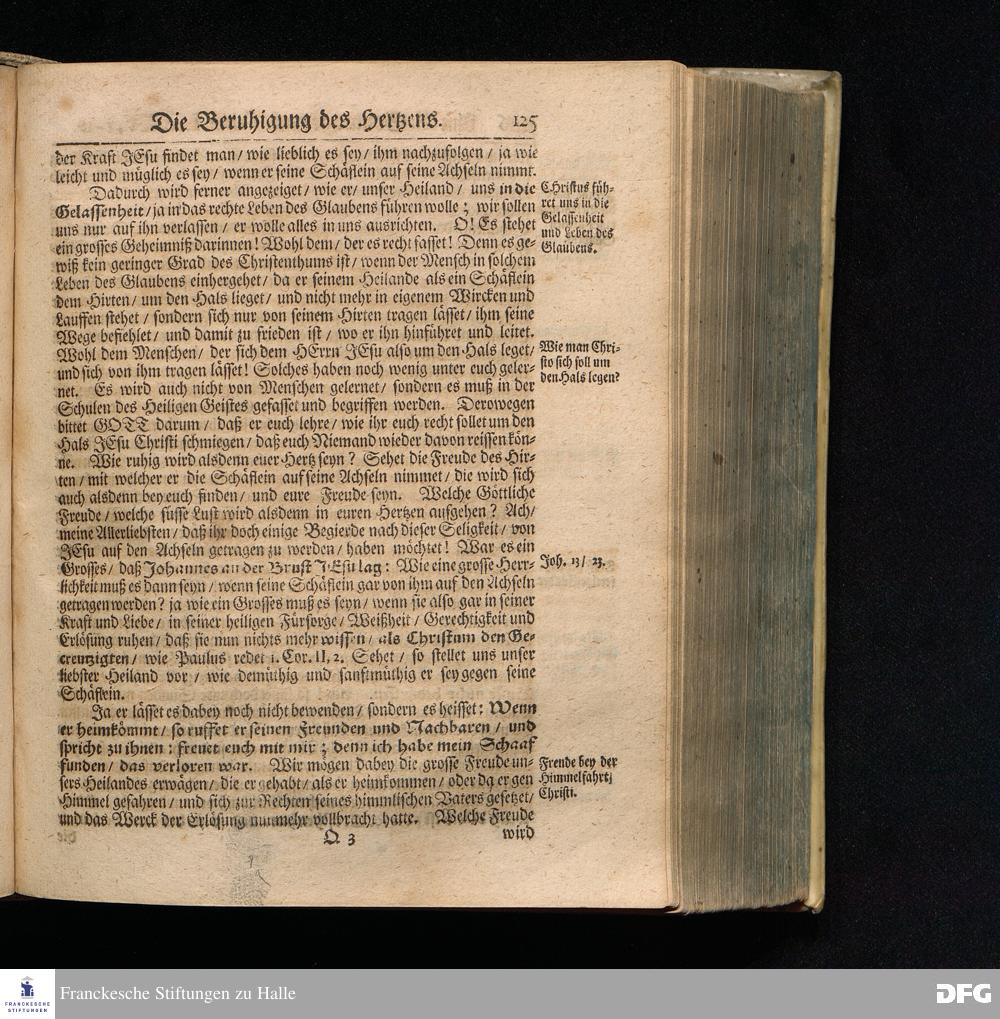 Die Beruhigung des Hertzens. 125
der Krafft JEsu findet man/ wie lieblich es sey/ ihm nachzufolgen/ ja wie
leicht und müglich es sey/ wenn er seine Schäflein auf seine Achseln nimmt.
Dadurch wird ferner angezeiget/ wie er/ unser Heiland/ uns in die
Gelassenheit/ ja in das rechte Leben des Glaubens führen wolle; wir sollen
uns nur auf ihn verlassen/ er wolle alles in uns ausrichten. O! Es stehet
ein grosses Geheimniß darinnen! Wohl dem/ der es recht fasset! Denn es ge-
wiß kein geringer Grad des Christenthums ist/ wenn der Mensch in solchem
Leben des Glaubens einhergehet/ da er seinem Heilande als ein Schäflein
dem Hirten/ um den Hals lieget/ und nicht mehr in eigenem Wircken und
Lauffen stehet/ sondern sich nur von seinem Hirten tragen lässet/ ihm seine
Wege befiehlet/ und damit zu frieden ist/ wo er ihn hinführet und leitet.
Wohl dem Menschen/ der sich dem HErrn JEsu also um den Hals leget/
und sich von ihm tragen lässet! Solches haben noch wenig unter euch geler-
net. Es wird auch nicht von Menschen gelernet/ sondern es muß in der
Schulen des Heiligen Geistes gefasset und begriffen werden. Derowegen
bittet GOTT darum/ daß er euch lehre/ wie ihr euch recht sollet um den
Hals JEsu Christi schmiegen/ daß euch Niemand wieder davon reissen kön-
ne. Wie ruhig wird alsdenn euer Hertz seyn? Sehet die Freude des Hir-
ten/ mit welcher er die Schäflein auf seine Achseln nimmet/ die wird sich
auch alsdenn bey euch finden/ und eure Freude seyn. Welche Göttliche
Freude/ welche süsse Lust wird alsdenn in euren Hertzen aufgehen? Ach/
meine Allerliebsten/ daß ihr doch einige Begierde nach dieser Seligkeit/ von
JEsu auf den Achseln getragen zu werden/ haben möchtet! War es ein
Grosses/ daß Johannes an der Brust JEsu lag: Wie eine grosse Herr-
lichkeit muß es dann seyn/ wenn seine Schäflein gar von ihm auf den Achseln
getragen werden? ja wie ein Grosses muß es seyn/ wenn sie also gar in seiner
Kraft und Liebe/ in seiner heiligen Fürsorge/ Weißheit/ Gerechtigkeit und
Erlösung ruhen/ daß sie nun nichts mehr wissen/ als Christum den Ge-
creutzigten/ wie Paulus redet 1. Cor. II, 2. Sehet/ so stellet uns unser
liebster Heiland vor/ wie demüthig und sanftmüthig er sey gegen seine
Schäflein.
Ja er lässet es dabey noch nicht bewenden/ sondern es heisset: Wenn
er heimkömmt/ so ruffet er seinen Freunden und Nachbaren/ und
spricht zu ihnen: freuet euch mit mir; denn ich habe mein Schaaf
funden/ das verloren war. Wir mögen dabey die grosse Freude un-
sers Heilandes erwägen/ die er gehabt/ als er heimkommen/ oder da er gen
Himmel gefahren/ und sich zur Rechten seines himmlischen Vaters gesetzet/
und das Werck der Erlösung nunmehr vollbracht hatte. Welche Freude
Q 3 wird
Christus füh-
ret uns in die
Gelassenheit
und Leben des
Glaubens.
Wie man Chri-
sto sich soll um
den Hals legen?
Joh. 13/ 23.
Freude bey der
Himmelfahrt
Christi.
FRANCKESCHE
STIFTUNGEN
Franckesche Stiftungen zu Halle
DFG